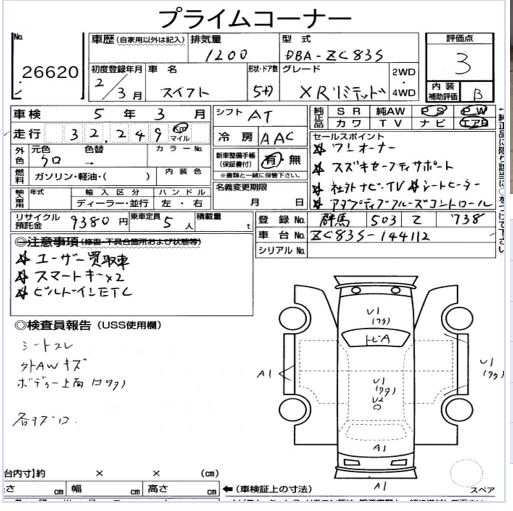 プライムコーナー
No.
26620
車歴 (自家用以外は記入)
排気量
型式
評価点
1200
DBA-ZC83S
3
初度登録年月
車名
形状・ドア数
グレード
2WD
4WD
2/3月
スイフト
5ドア
XRリミテッド
内装
補助評価
B
車検
5年3月
シフト
AT
純正品
SR
純AW
PS
PW
カワ
TV
ナビ
エアB
走行
32,249
km
マイル
冷房
AAC
セールスポイント
ワンオーナー
スズキセーフティサポート
社外ナビ・TV シートヒーター
アダプティブクルーズコントロール
外色
元色
色替
カラーNo.
クロ
→
新車整備手帳
(保証書付)
有・無
※書類と一緒に保管下さい。
燃料
ガソリン・軽油・( )
内装色
名義変更期限
月 日
輸入車用
年式
輸入区分
ハンドル
ディーラー・並行
左・右
リサイクル
預託金
9380円
乗車定員
5人
積載量
t
登録No.
群馬
503
738
車台No.
ZC83S-144112
シリアルNo.
◎注意事項 (修復・不具合箇所および状態等)
ユーザー買取車
スマートキー×2
ビルドインETC
◎検査員報告 (USS使用欄)
シートスレ
外AWキズ
各キズ
U1
(ワク)
トビA
U1
(ワク)
U2
A1
U1
(ワク)
A1
A1
スペア
台内寸)約 × × (cm)
cm
幅
cm
高さ
cm
←(車検証上の寸法)